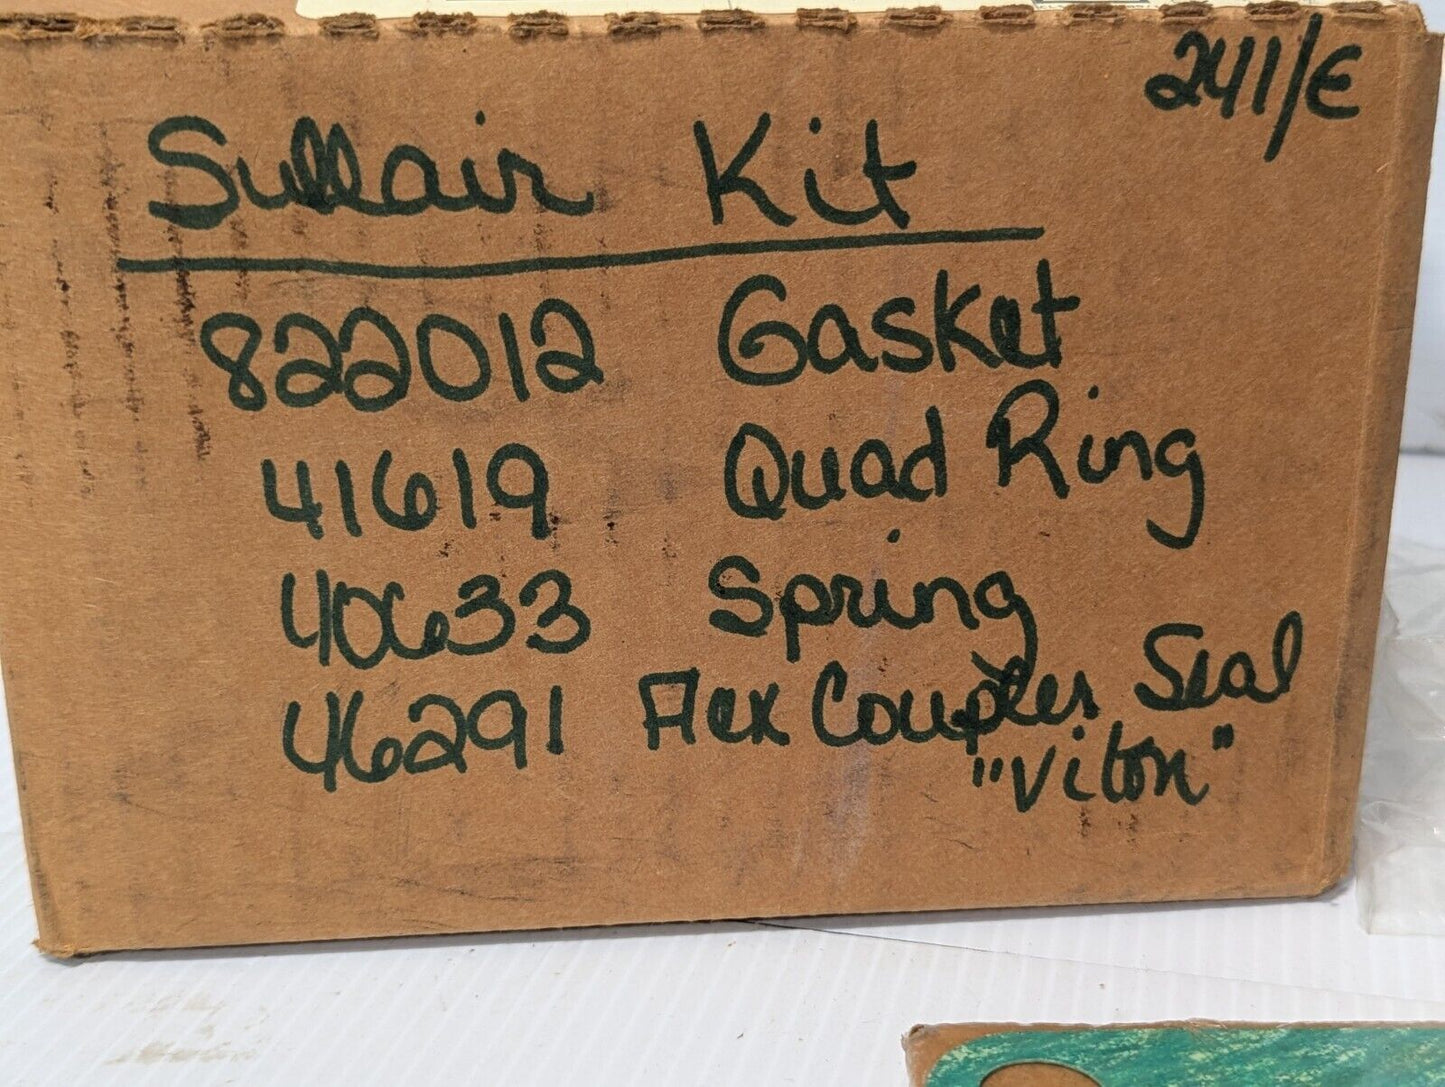 241/E
Sullair Kit
822012 Gasket
41619 Quad Ring
40633 Spring
46291 Flex Coupler Seal
"Viton"